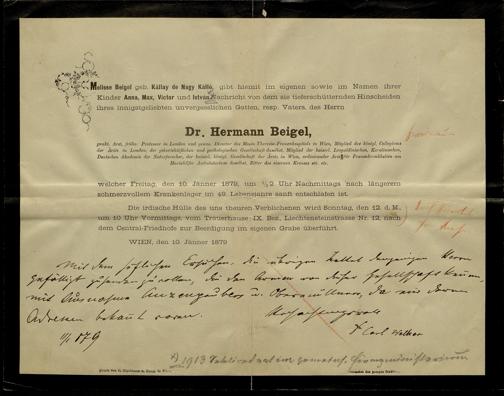 Melisse Beigel geb. Kállay de Nagy Kálló, gibt hiemit im eigenen sowie im Namen ihrer
Kinder Anna, Max, Victor und Istvan Nachricht von dem sie tieferschütternden Hinscheiden
ihres innigstgeliebten unvergesslichen Gatten, resp. Vaters, des Herrn
Dr. Hermann Beigel,
prakt. Arzt, früher Professor in London und gewes. Director des Maria Theresia-Frauenhospitals in Wien, Mitglied des königl. Collegiums
der Ärzte in London, der geburtshilflichen und pathologischen Gesellschaft daselbst, Mitglied der kaiserl. Leopoldinischen, Karolinischen,
Deutschen Akademie der Naturforscher, der kaiserl. königl. Gesellschaft der Ärzte in Wien, ordinirender Arzt für Frauenkrankheiten am
Mariahilfer Ambulatorium daselbst, Ritter des eisernen Kreuzes etc. etc.
welcher Freitag, den 10. Jänner 1879, um 1/2 2 Uhr Nachmittags nach längerem
schmerzvollem Krankenlager im 49. Lebensjahre sanft entschlafen ist.
Die irdische Hülle des uns theuren Verblichenen wird Sonntag, den 12. d. M.,
um 10 Uhr Vormittags, vom Trauerhause: IX. Bez., Liechtensteinstrasse Nr. 12, nach
dem Central-Friedhofe zur Beerdigung im eigenen Grabe überführt.
WIEN, den 10. Jänner 1879
Mit dem höflichen Ersuchen, die übrigen Zettel denjenigen Herren
gefälligst zusenden zu wollen, die den Armen von dieser Gesellschaft kennen,
mit Ausnahme Anzengrubers u. Obermüllner, da mir deren
Adressen bekannt waren.
Hochachtungsvoll
Dr Carl
11/1 879
1913